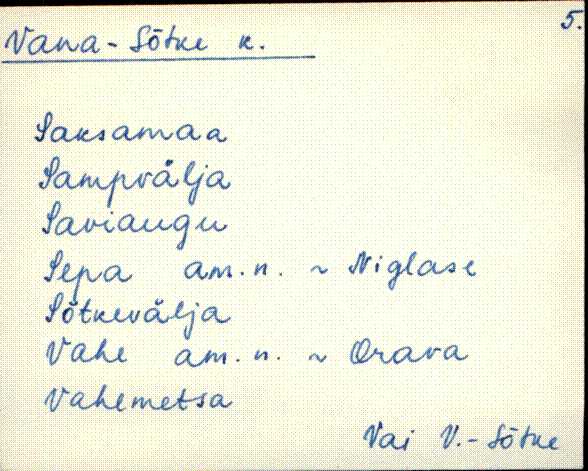 5.
Vana-Sõtke k.
Saksamaa
Sampvälja
Saviaugu
Sepa am.n. ~ Niglase
Sõtkevälja
Vahe am.n. ~ Orava
Vahemetsa
Vai V.-Sõtke